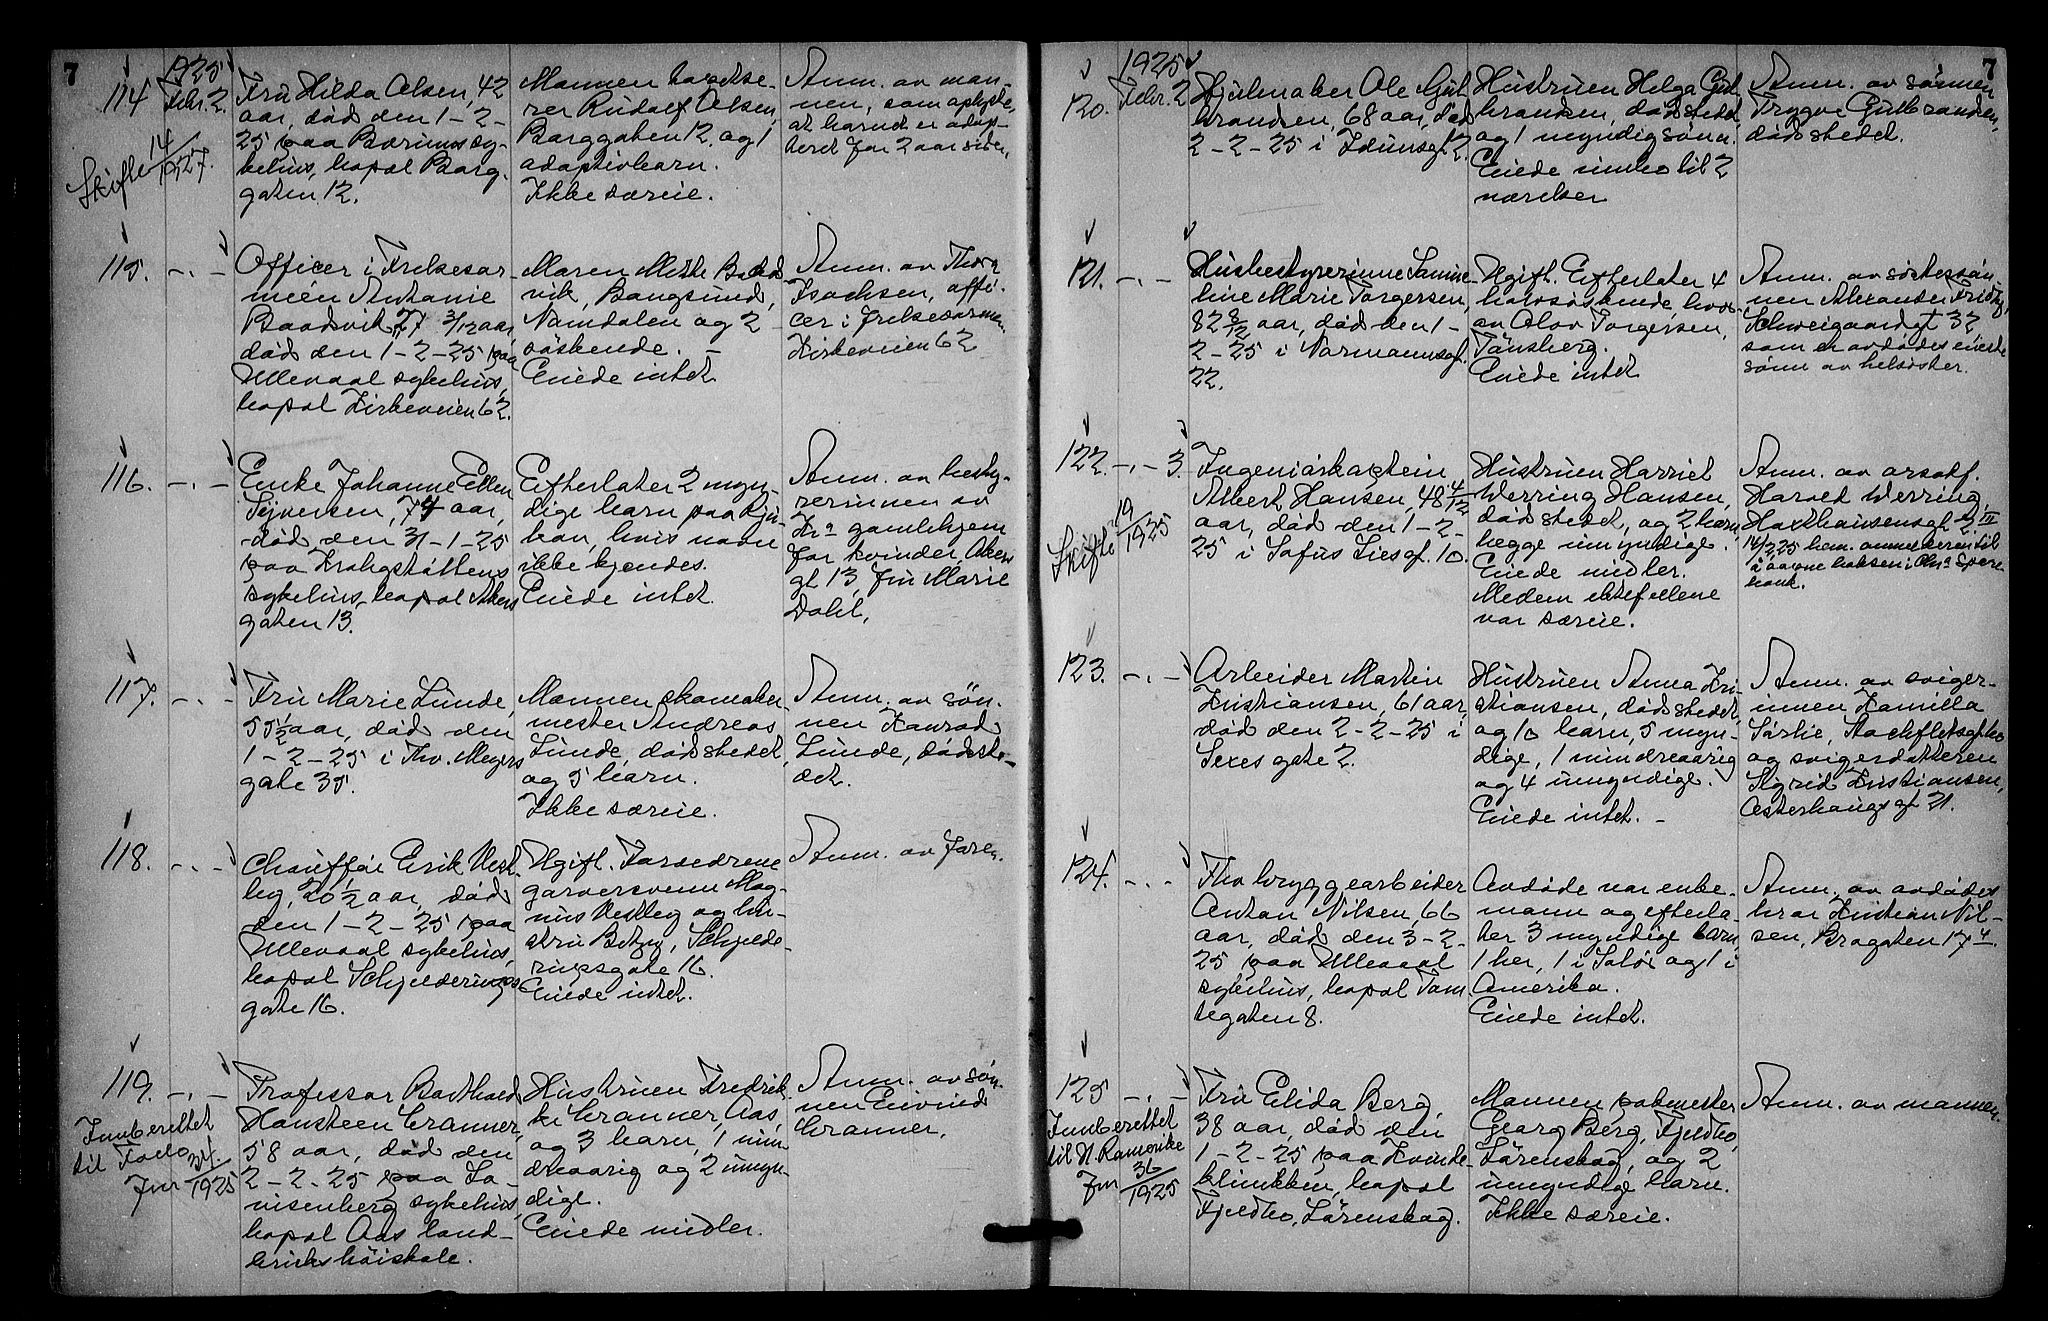 7
114
1925
Febr. 2
Skifte 14/1927.
Fru Hilda Olsen, 42
aar, død den 1-2-
25 paa Bærums sy-
kehus, bopæl Borg-
gaten 12.
Mannen
Rudolf Olsen,
Borggaten 12, og 1
adoptivbarn.
Ikke særeie.
Anm. av man-
nen, som oplyste,
at barnet er adop-
teret for 2 aar siden.
115. -.-
Officer i Frelsesar-
méen Antonie
Baadsvik, 27 3/12 aar,
død den 1-2-25 paa
Ullevaal sykehus,
bopæl Kirkeveien 62.
Moren Mette Baads-
vik, Bangsund,
Namdalen og 2
søskende. -
Eiede intet
Anm. av Thora
Isachsen, offi-
cer i frelsesarmeen,
Kirkeveien 62
116. -.-
Enke Johanne Ellen
Syversen, 74 aar,
død den 31-1-25
paa Krohgstøttens
sykehus, bopæl Akers
gaten 13.
Efterlater 2 myn-
dige barn paa Rju-
kan, hvis navn
ikke kjendes.
Eiede intet.
Anm. av besty-
rerinnen av
Kra gamlehjem
for kvinder Akers
gt 13, fru Marie
Dahl.
117. -.-
Fru Marie Lunde,
55 1/2 aar, død den
1-2-25 i Thv. Meyers
gate 35.
Mannen skomaker-
mester Andreas
Lunde, dødstedet,
og 5 barn.
Ikke særeie.
Anm. av søn-
nen Konrad
Lunde, dødste-
det.
118. -.-
Chauffør Erik Vest-
by, 20 1/2 aar, død
den 1-2-25 paa
Ullevaal sykehus,
bopæl Schjelderups
gate 16.
Ugift. Forældrene
garversvenn Mag-
nus Vestby og hu-
stru Betzy, Schjelde-
rupsgate 16.
Eiede intet.
Anm. av faren.
119. -.-
Innberettet
til Follo
Jnr 34/1925
Professor Barthold
Hansteen Cranner,
58 aar, død den
2-2-25 paa Lo-
visenberg sykehus,
bopæl Aas land-
bruks høiskole.
Hustruen Fredrik-
ke Cranner, Aas,
og 3 barn, 1 min
dreaarig og 2 umyn-
dige.
Eiede midler.
Anm. av søn-
nen Eivind
Cranner.
7
120.
1925
Febr. 2
Hjulmaker Ole Gul
brandsen, 68 aar, død
2-2-25 i Idunsgt. 2.
Hustruen Helga Gul
brandsen, dødstedet,
og 1 myndig sønn.
Eiede innbo til 2
værelser
Anm. av sønnen
Trygve Gulbrandsen,
dødstedet.
121. -.-
Husbestyrerinne Samue
line Marie Torgersen,
82 8/12 aar, død den 1-
2-25 i Normannsgt.
22.
Ugift. Efterlater 4
halvsøskende, hvor-
av Olav Torgersen,
Tønsberg.
Eiede intet
Anm. av søstersøn
nen Alexander
Schweigaardgt 32,
som er avdødes eneste
sønn av helsøster.
122. -.- 3.
Skifte 19/1925
Ingeniørkaptein
Albert Hansen, 48 4/12
aar, død den 1-2-
25 i Sofus Liesgt. 10.
Hustruen Harriet
Werring Hansen,
dødstedet, og 2 barn,
begge umyndige.
Eiede midler.
Mellem ektefellene
var særeie.
Anm. av orsakf.
Harold Werring,
Haxthausensgt 2 IV
14/2 25 bem. anmelderen til
å aapne boksen i Chra Spare
bank.
123. -.-
Arbeider Martin
Kristiansen, 61 aar,
død den 2-2-25 i
Sexes gate 2.
Hustruen Anna Kri-
stiansen, dødstedet,
og 10 barn, 5 myn-
dige, 1 mindreaarig
og 4 umyndige.
Eiede intet. -
Anm. av sviger-
innen Kamilla
Sørlie,
og svigerdatteren
Sigrid Kristiansen,
Østerhausgt 21.
124. -.-
Fhv bryggearbeider
Anton Nilsen, 66
aar, død den 3-2-
25 paa Ullevaal
sykehus, bopæl Tom
tegaten 8.
Avdøde var enke-
mann og efterla-
ter 3 myndige barn,
1 her, 1 i Solør og 1 i
Amerika.
Eiede intet.
Anm. av avdødes
bror Kristian Nil-
sen, Brogaten 17 4.
125 -.-
Innberettet
til N. Romerike
Jnr 36/1925
Fru Elida Berg,
38 aar, død den
1-2-25 paa Kvinde-
klinikken, bopæl
Fjeldbo, Lørenskog.
Mannen pakmester
Georg Berg, Fjeldbo,
Lørenskog, og 2
umyndige barn.
Ikke særeie.
Anm. av mannen.